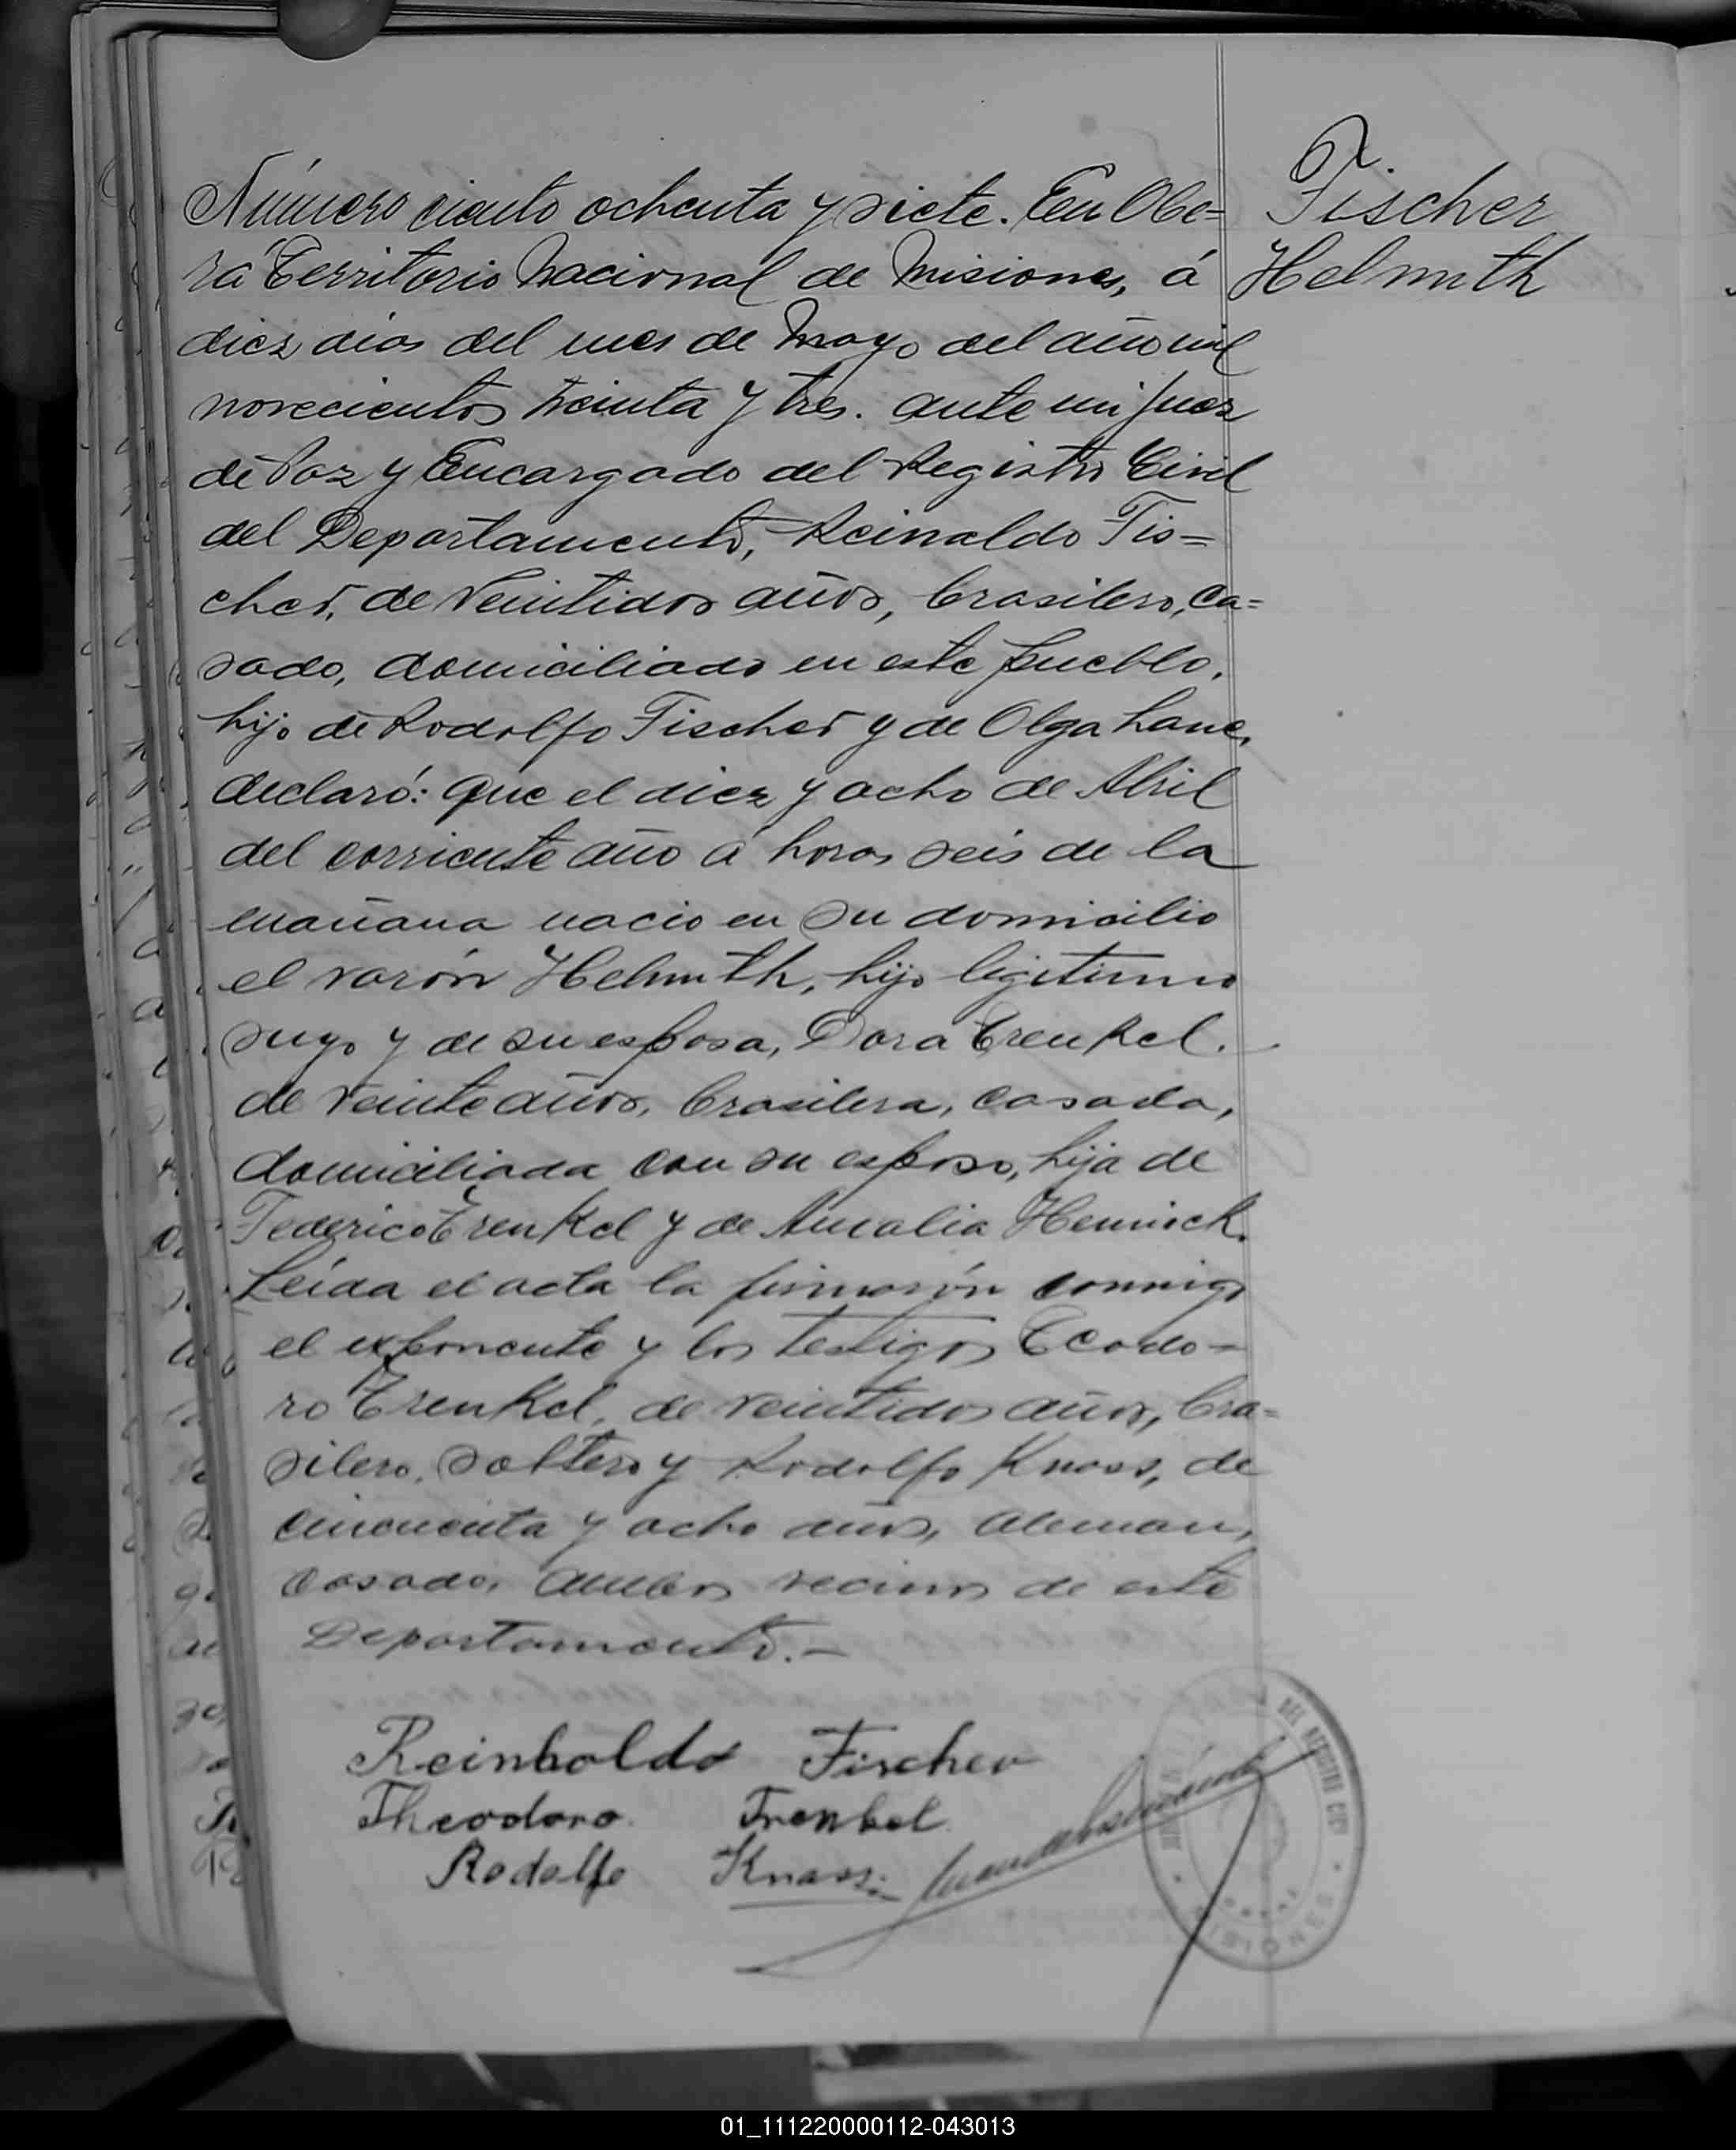 Número ciento ochenta y siete. En Obe=
rá Territorio Nacional de Misiones, á
diez dias del mes de Mayo del año mil
novecientos treinta y tres. ante mi Juez
de Paz y Encargado del Registro Civil
del Departamento, Reinaldo Fis=
cher, de veintidos años, brasilero, ca=
sado, domiciliado en este pueblo,
hijo de Rodolfo Fischer y de Olga Lane,
declaró: que el diez y ocho de Abril
del corriente año á horas seis de la
mañana nacio en su domicilio
el varón Helmuth, hijo legitimo
suyo y de su esposa, Dora Trenkel.
de veinte años, brasilera, casada,
domiciliada con su esposo, hija de
Federico Trenkel y de Amalia Hennick.
Leída el acta la firmarón conmigo
el exponente y los testigos Teodo=
ro Trenkel, de veintidos años, bra=
silero, soltero y Rodolfo Knoss, de
cincuenta y ocho años, aleman,
casado, ambos vecinos de este
Departamento.-
Fischer
Helmuth
Reinholdo Fischer
Theodoro Trenkel
Rodolfo Knoss
DEL REGISTRO CIVIL
MISIONES
01_111220000112-043013